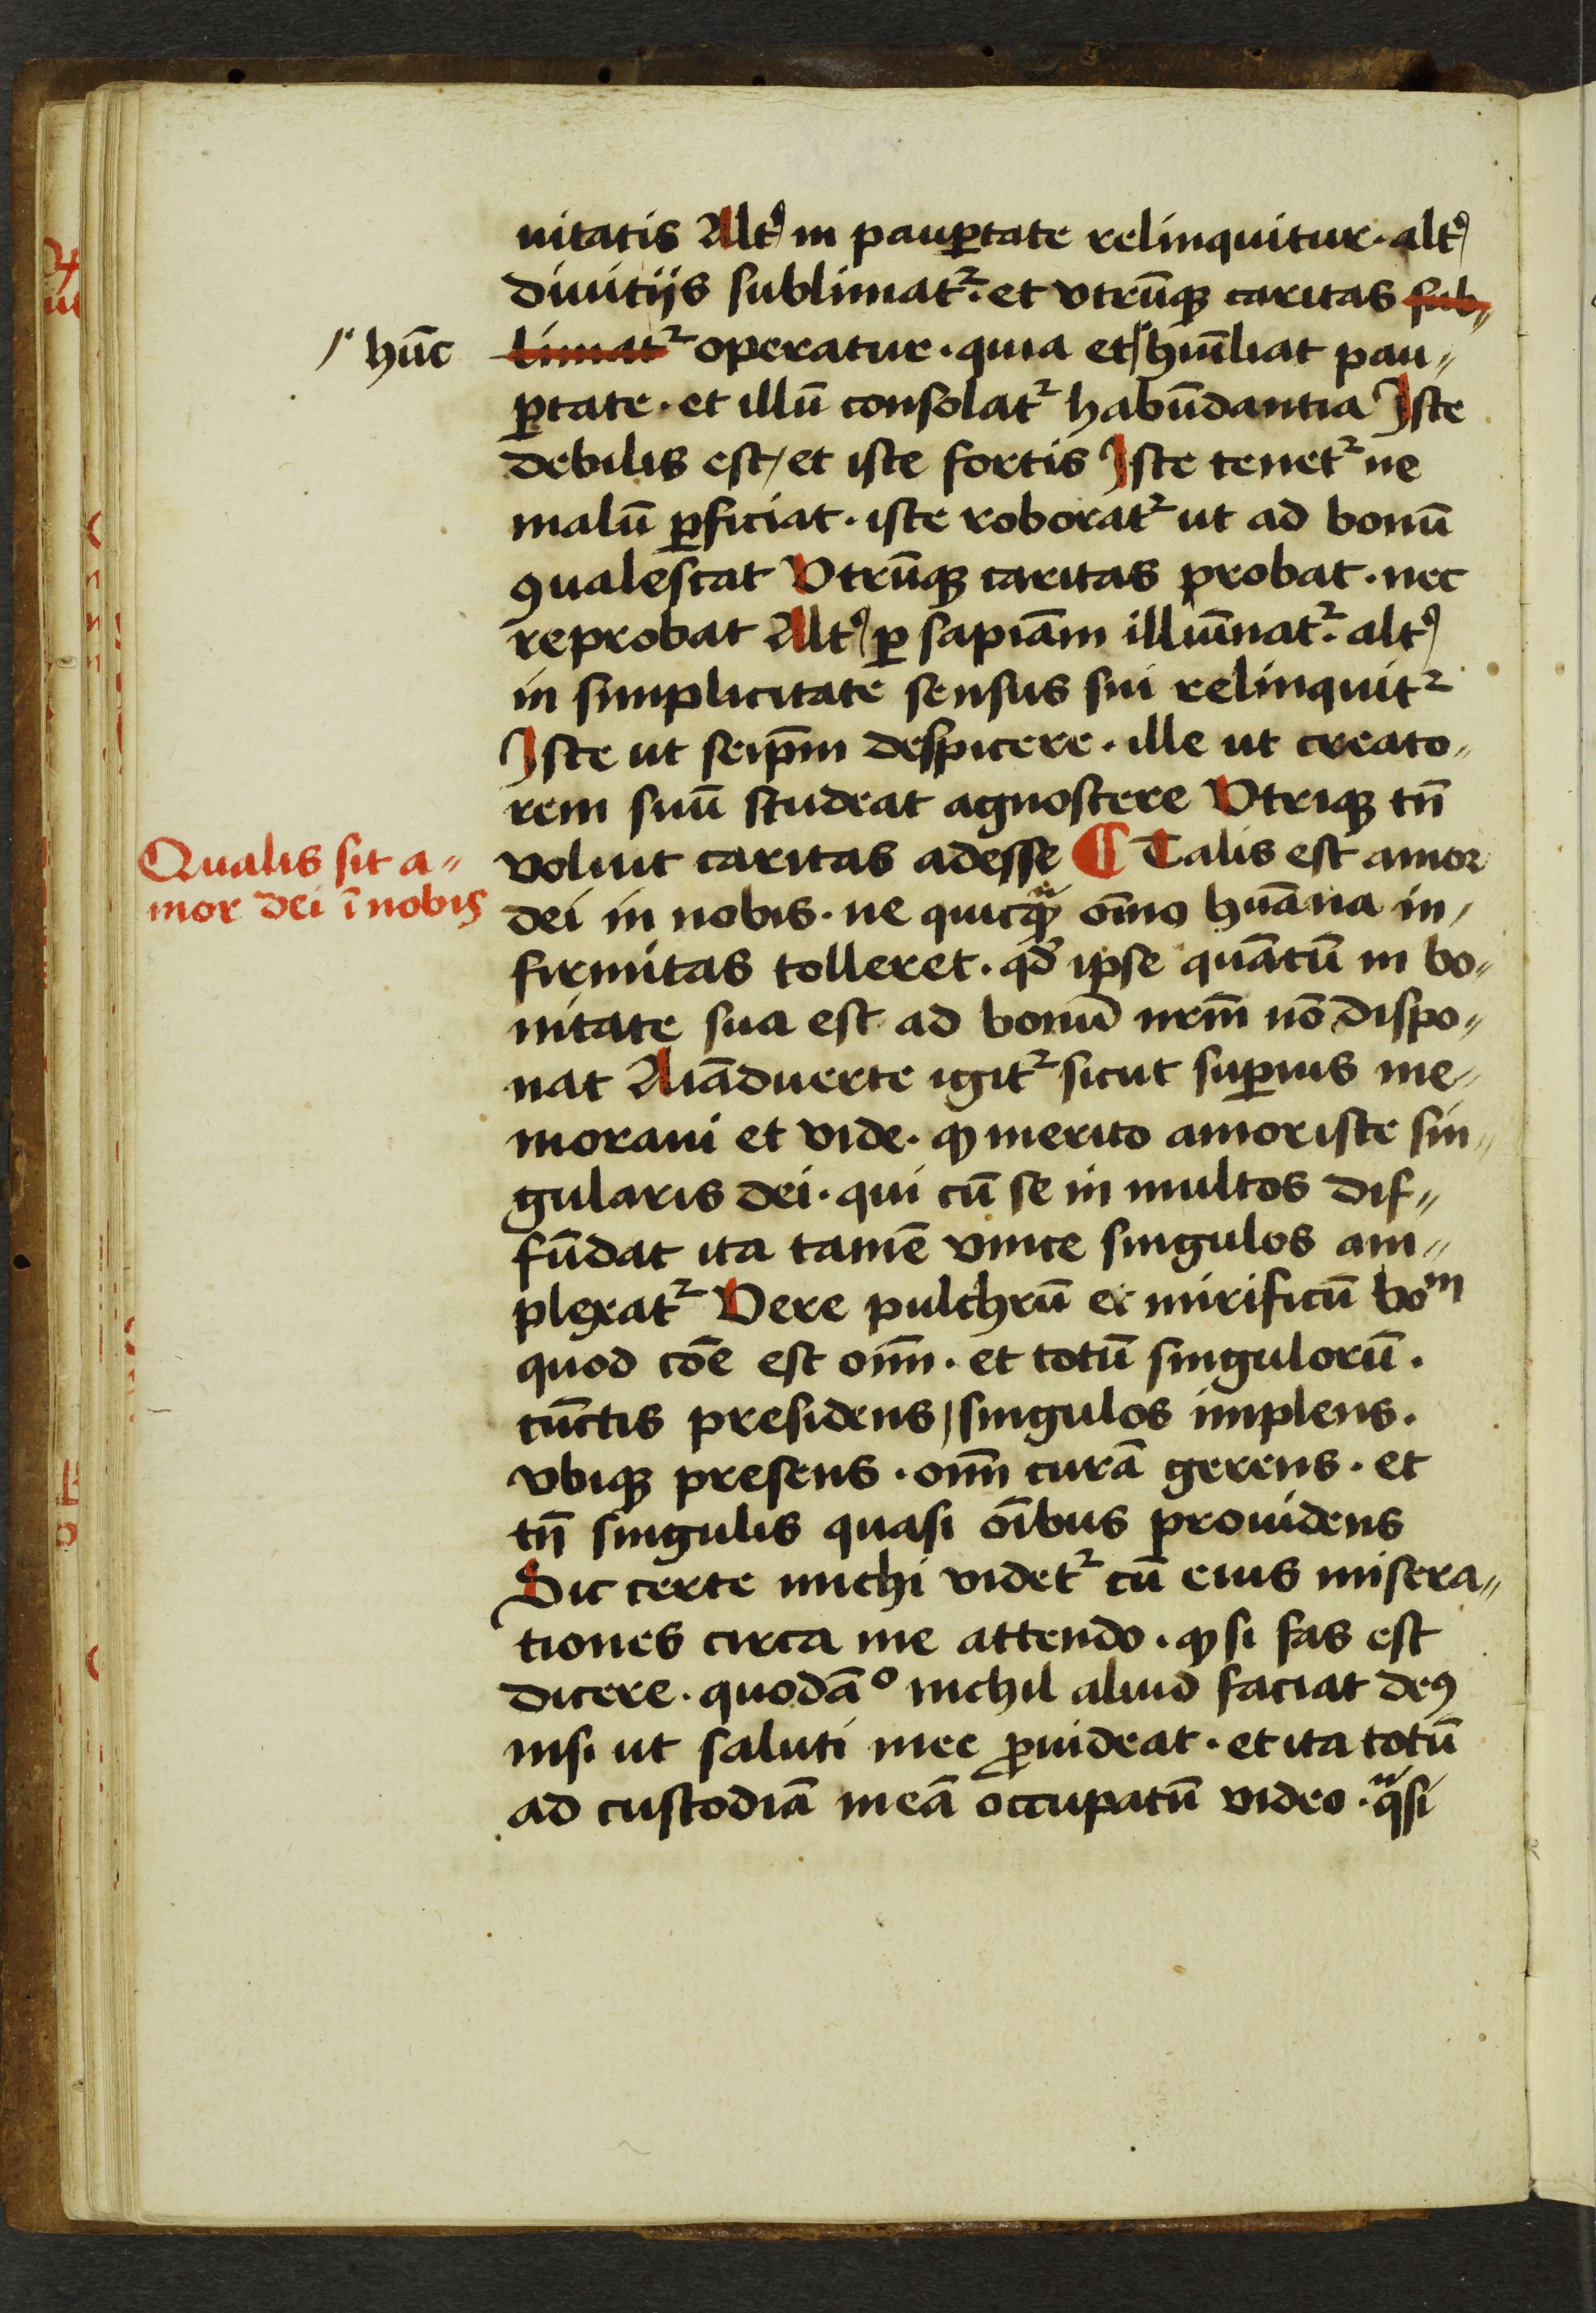 uitatis Altꝰ in pauꝑtate relinquitur · altꝰ
diuitijs sublimat᷑ · et vtrūqꝫ caritas sub„
limat᷑ operatur · quia et / hūiliat pau„
/ hūc
ꝑtate · et illū consolat᷑ habūdantia Iste
debilis est / et iste fortis Iste tenet᷑ ne
malū ꝑficiat · iste roborat᷑ ut ad bonū
ꝯualescat Vtrūqꝫ caritas probat · nec
reprobat Altꝰ ꝑ sapiām illūinat᷑ · altꝰ
in simplicitate sensus sui relinquit᷑
Iste ut seip̄m despicere · ille ut creato„
rem suū studeat agnoscere Vtriqꝫ tn̄
voluit caritas adesse ¶ Talis est amor
Qualis sit a„
mor dei ī nobis
dei in nobis · ne quicqᷓꝫ om̄o huāna in„
firmitas tolleret · qd̄ ipse quātū in bo„
nitate sua est ad bonū nr̄m nō dispo„
nat Aīaduerte igit᷑ sicut suꝑius me„
moraui et vide · ꝙ merito amor iste sin„
gularis dei · qui cū se in multos dif„
fūdat ita tamē vnice singulos am„
plexat᷑ Vere pulchrū et mirificū boᵐ
quod cōe est om̄ · et totū singulorū ·
cūctis presidens / singulos implens ·
vbiqꝫ presens · om̄ curā gerens · et
tn̄ singulis quasi oībus prouidens
Sic certe michi videt᷑ cū eius misera„
tiones circa me attendo · ꝙ si fas est
dicere · quodāᵒ nichil aliud faciat deꝰ
nisi ut saluti mee ꝓuideat · et ita totū
ad custodiā meā occupatū video · qᷓsi